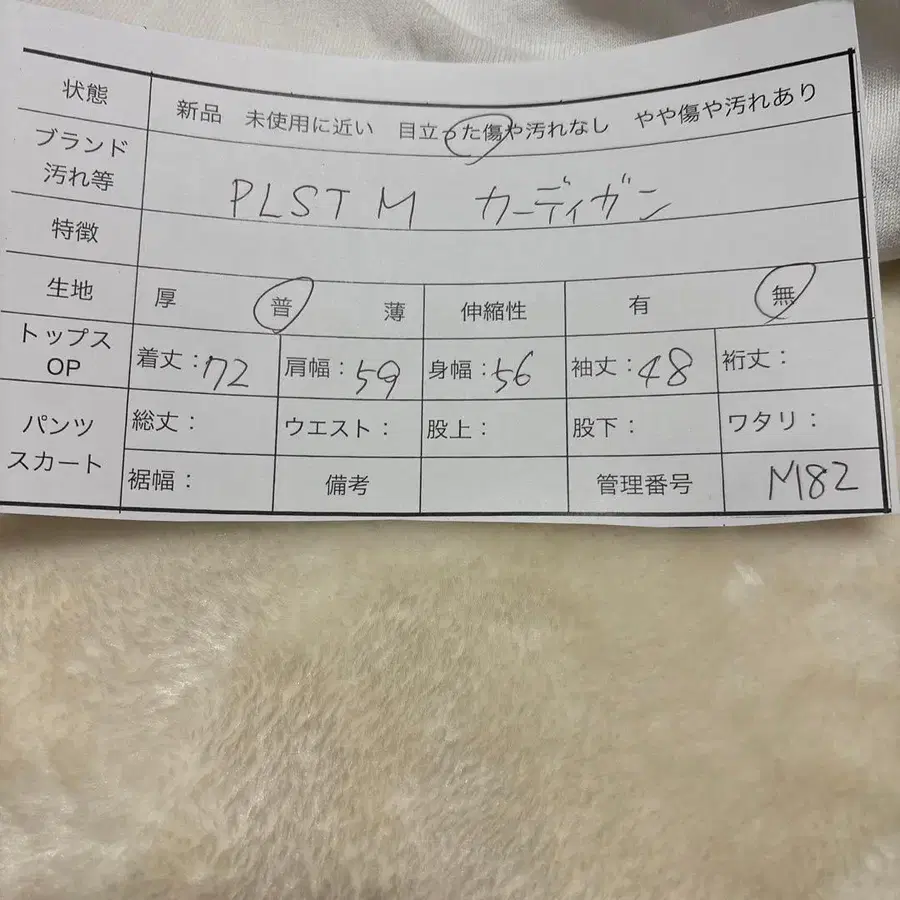 状態 新品 未使用に近い 目立った傷や汚れなし やや傷や汚れあり
ブランド
汚れ等 PLST M カーディガン
特徴
生地 厚 普 薄 伸縮性 有 無
トップス
OP 着丈:72 肩幅:59 身幅:56 袖丈:48 裄丈:
パンツ
スカート 総丈: ウエスト: 股上: 股下: ワタリ:
裾幅: 備考 管理番号 M82